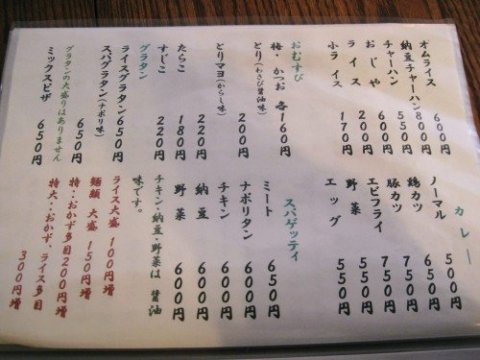 オムライス 600円
納豆チャーハン 800円
チャーハン 550円
おじや 600円
ライス 200円
小ライス 170円
おむすび
梅・かつお 各160円
とり(わさび醤油味) 200円
とりマヨ(からし味) 220円
たらこ 220円
すじこ 180円
グラタン
ライスグラタン 650円
スパグラタン(ナポリ味) 650円
グラタンの大盛りはありません
ミックスピザ 650円
カレー
ノーマル 500円
鶏カツ 650円
豚カツ 750円
エビフライ 750円
野菜 550円
エッグ 550円
スパゲッティ
ミート 650円
ナポリタン 600円
チキン 600円
納豆 600円
野菜 600円
チキン・納豆・野菜は 醤油
味です。
ライス大盛 100円増
麺類 大盛 150円増
特・おかず多目 200円増
特大・おかず、ライス多目
300円増